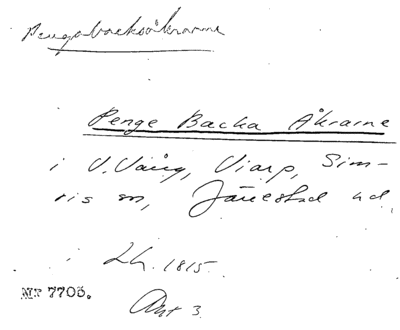 Pengabacksåkrarne
Penge Backa Åkrarne
i V. Vång, Viarp, Sim-
ris sn, Järrestad hd.
LH. 1815.
Nr 7705.
Akt 3